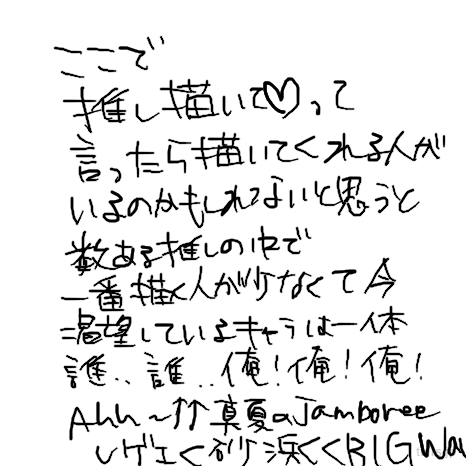 ここで
推し描いて♡って
言ったら描いてくれる人が
いるのかもしれないと思うと
数ある推しの中で
一番描く人が少なくて今
渇望しているキャラは一体
誰‥誰‥俺!俺!俺!
Ahh〜真夏のJamboree
レゲエ砂浜BIGWa